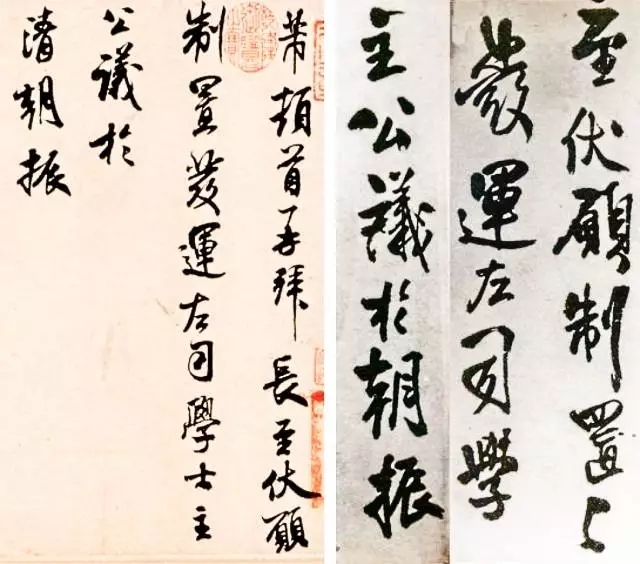 芾頓首再拜長至伏願
制置發運左司學士主
公議於
清朝振
至伏願制置
發運左司學
主公議於朝振